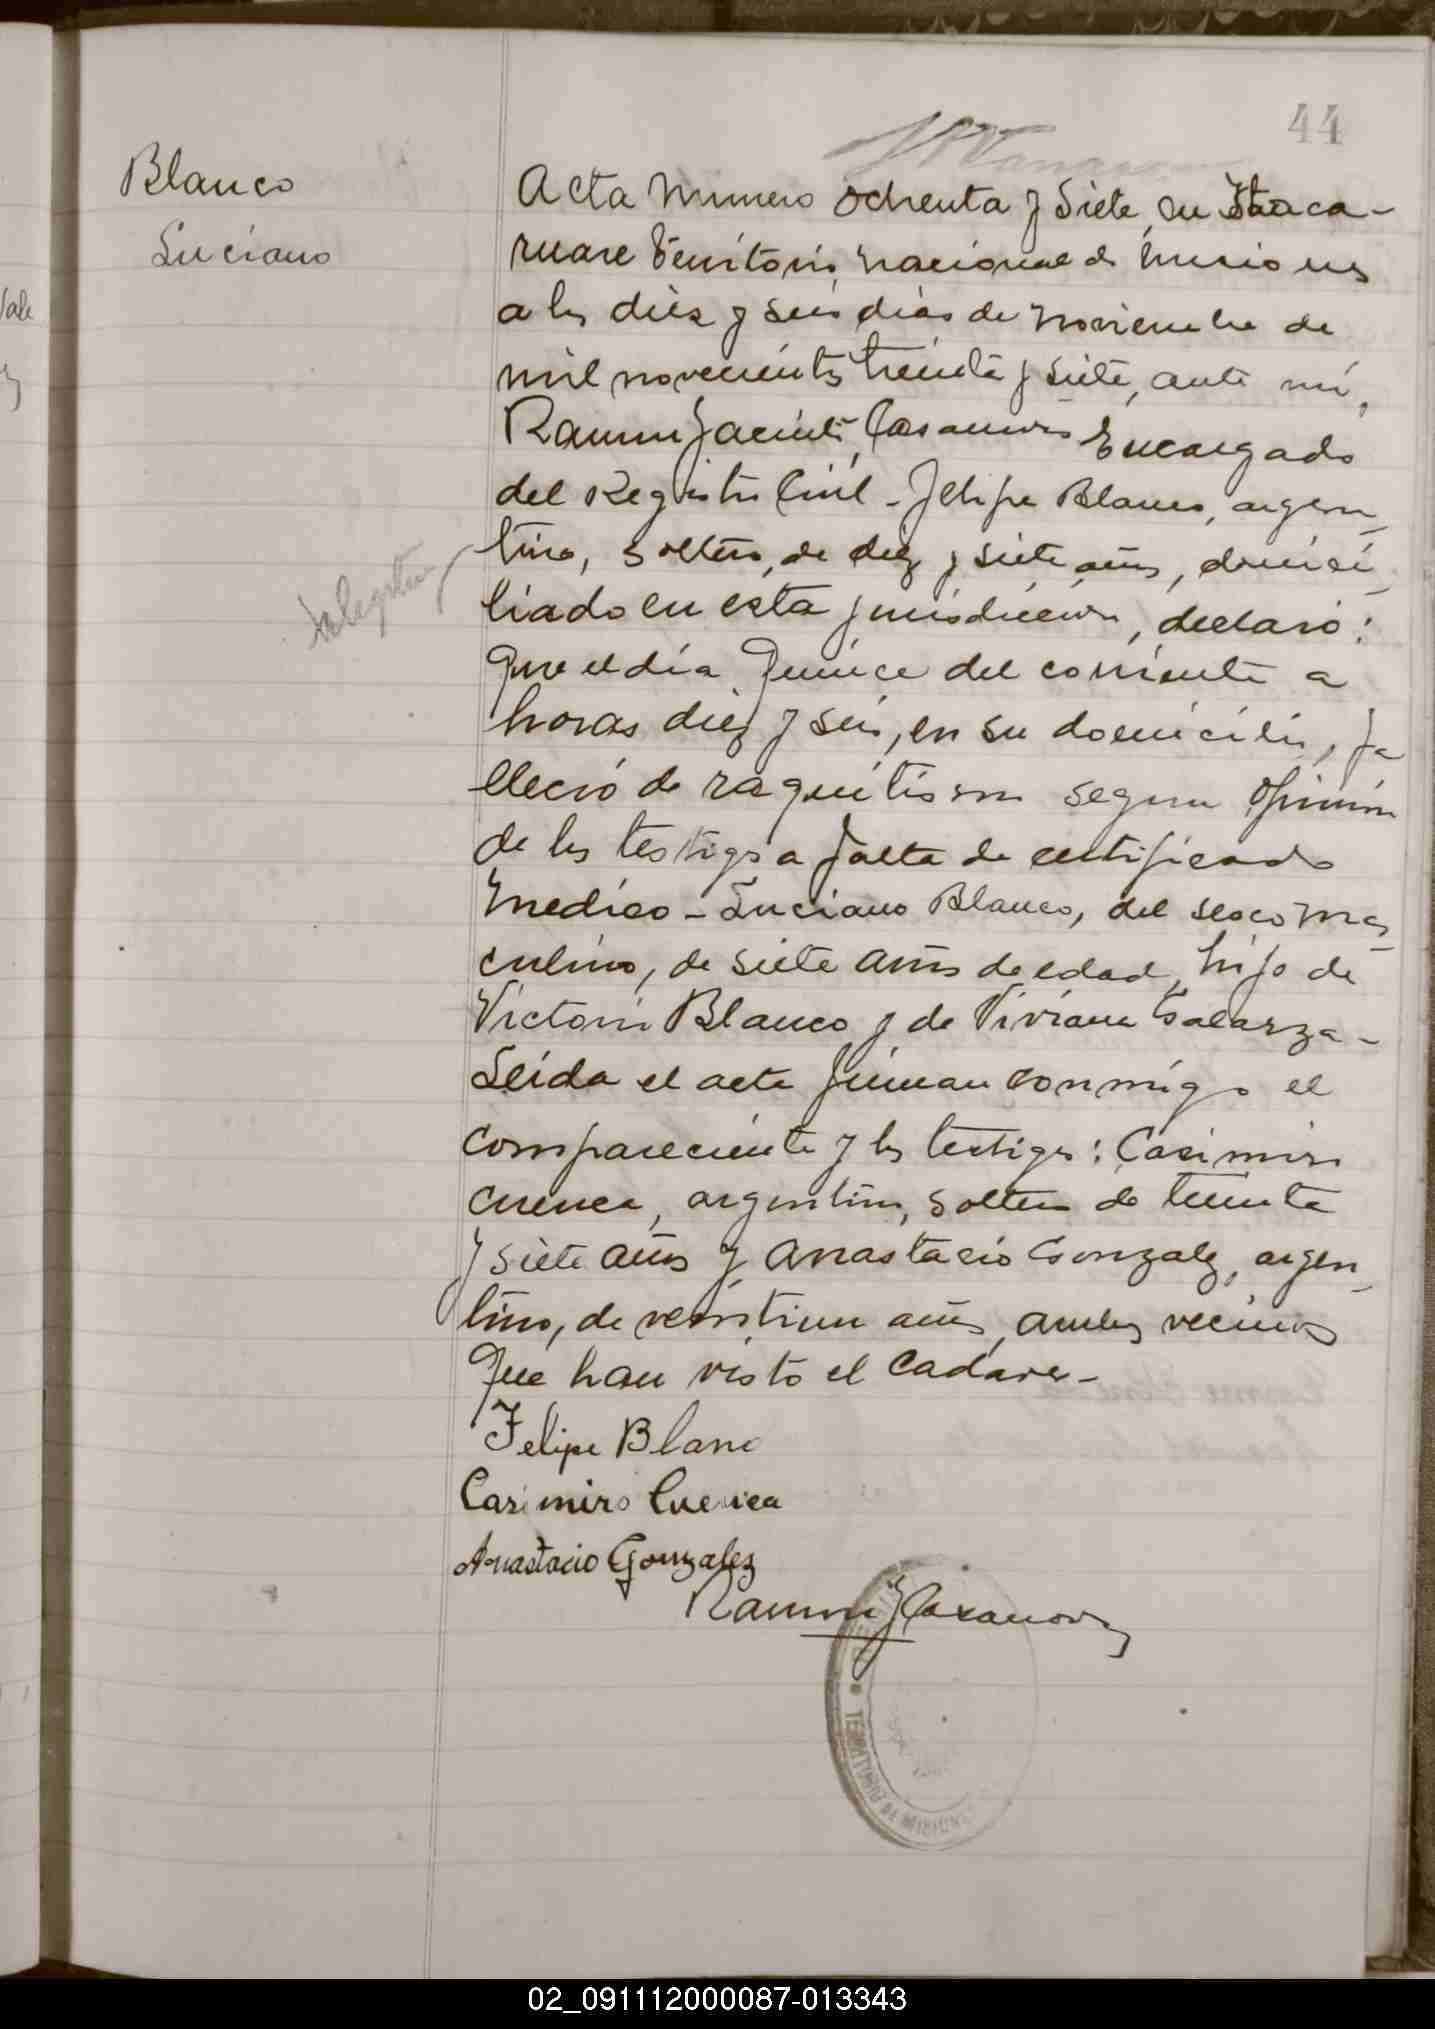 44
Blanco
Luciano
Acta Numero ochenta y siete, en Itaca-
ruare Territorio Nacional de Misiones
a los diez y seis dias de Noviembre de
mil novecientos treinta y siete, ante mi,
Ramon Jacinto Casanova Encargado
del Registro Civil - Felipe Blanco, argen-
tino, soltero, de diez y siete años, domici-
liado en esta jurisdicción, declaró:
Que el día Quince del corriente a
horas diez y seis, en su domicilio, fa
lleció de raquitismo segun opinión
de los testigos a falta de certificado
Medico - Luciano Blanco, del sexo mas-
culino, de siete años de edad, hijo de
Victorio Blanco y de Viviana Galarza-
Leida el acta firman conmigo el
compareciente y los testigos: Casimiro
Cuenca, argentino, soltero de treinta
y siete años y Anastacio Gonzalez, argen-
tino, de veintiun años, ambos vecinos
que han visto el cadaver-
Felipe Blanc
Casimiro Cuenca
Anastacio Gonzalez
Ramon J Casanova
TERRITORIO DE MISIONES
02_091112000087-013343